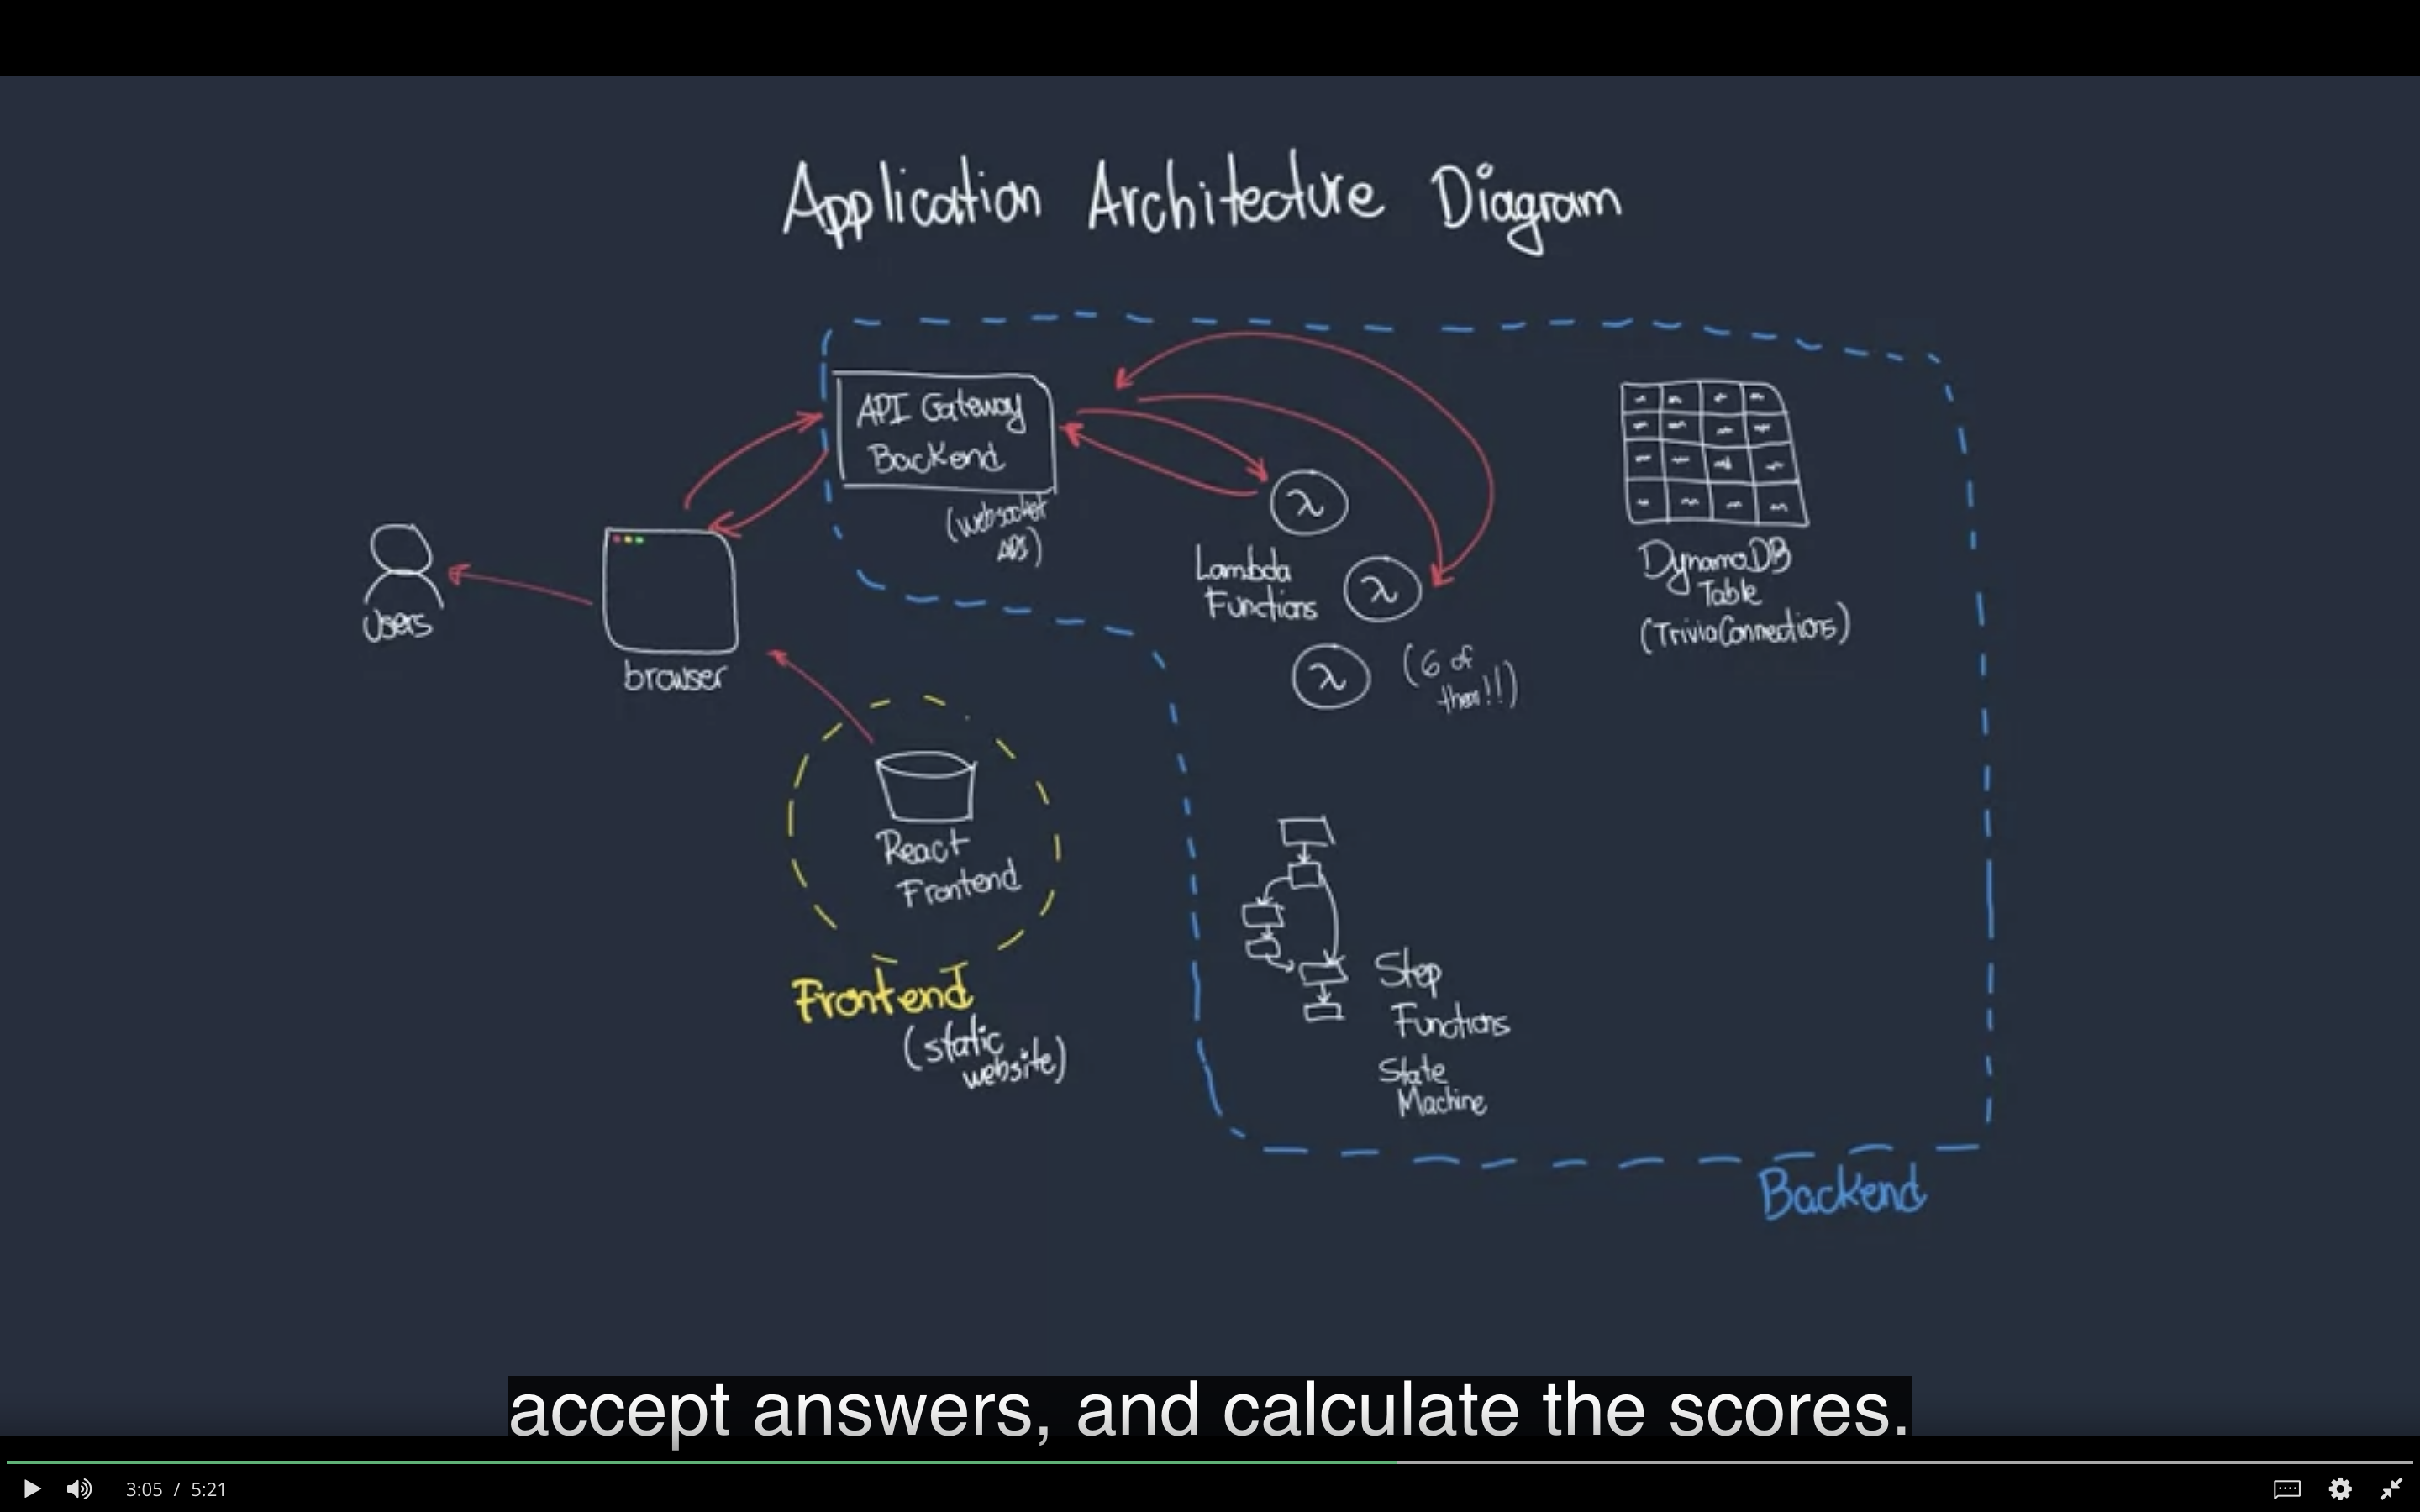 Application Architecture Diagram
API Gateway
Backend
(Websocket
APIs)
Users
browser
λ
Lambda
Functions
λ
λ
(6 of
them!!)
DynamoDB
Table
(TriviaConnections)
React
Frontend
Frontend
(static
website)
Step
Functions
State
Machine
Backend
accept answers, and calculate the scores.
3:05 / 5:21